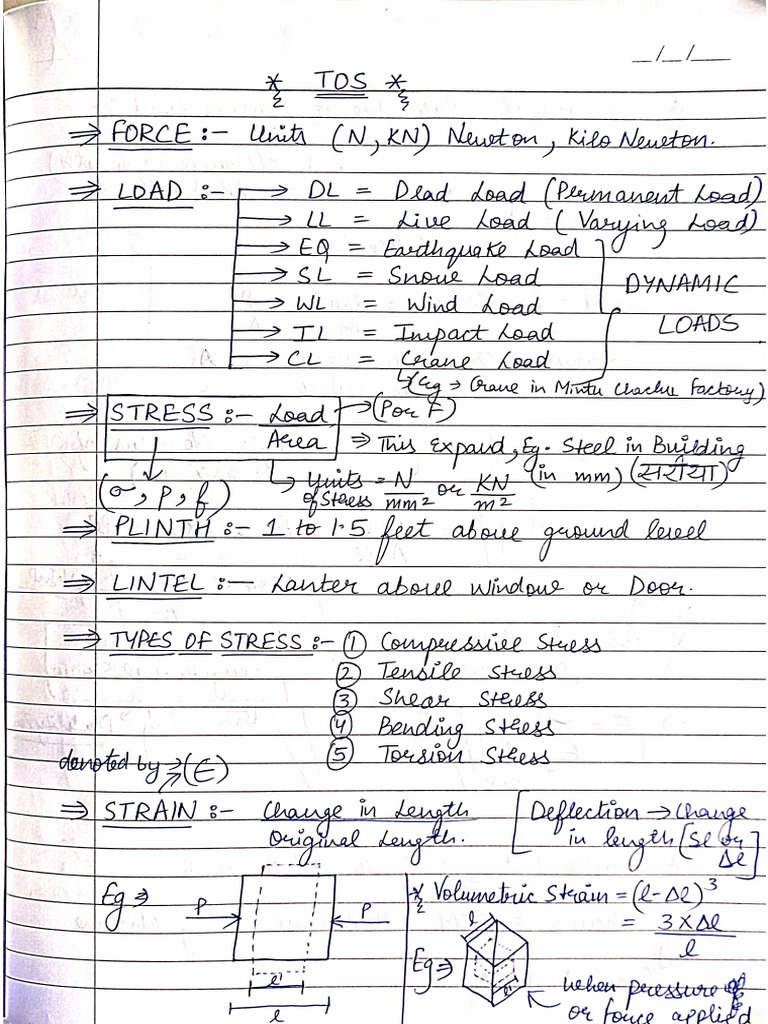 _/_/__
* TOS *
⇒ FORCE :- Units (N, KN) Newton, Kilo Newton.
⇒ LOAD :- → DL = Dead Load (Permanent Load)
→ LL = Live Load (Varying Load)
→ EQ = Eardhquake Load
→ SL = Snow Load
DYNAMIC
→ WL = Wind Load
LOADS
→ IL = Impact Load
→ CL = Crane Load
(Eg → Crane in Mintu Chachu Factory)
⇒ STRESS :- Load → (P or F)
Area ⇒ This Expand, Eg. Steel in Building
(σ, p, f) → Units of Stress = N/mm² or KN/m² (in mm) (सरीया)
⇒ PLINTH :- 1 to 1.5 feet above ground level
⇒ LINTEL :- Lanter above window or Door.
⇒ TYPES OF STRESS :- ① Compressive Stress
② Tensile stress
③ Shear stress
④ Bending stress
⑤ Torsion Stress
denoted by → (E)
⇒ STRAIN :- Change in Length [Deflection → Change
Original Length. in length [Sl or Δl]
Eg ⇒ P P
l'
l
* Volumetric Strain = (l-Δl)³
= 3×Δl
l
l
Eg ⇒
l'
when pressure
or force applied